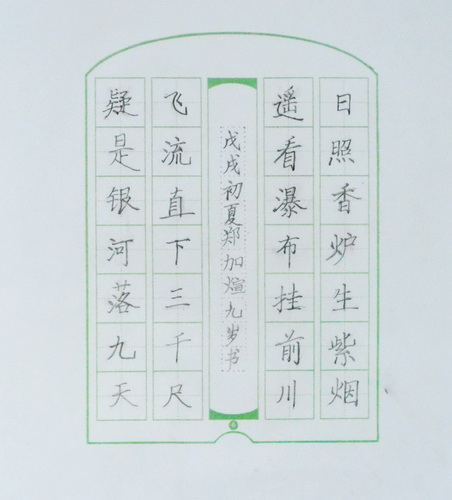 日照香炉生紫烟
遥看瀑布挂前川
飞流直下三千尺
疑是银河落九天
戊戌初夏郑加煊九岁书